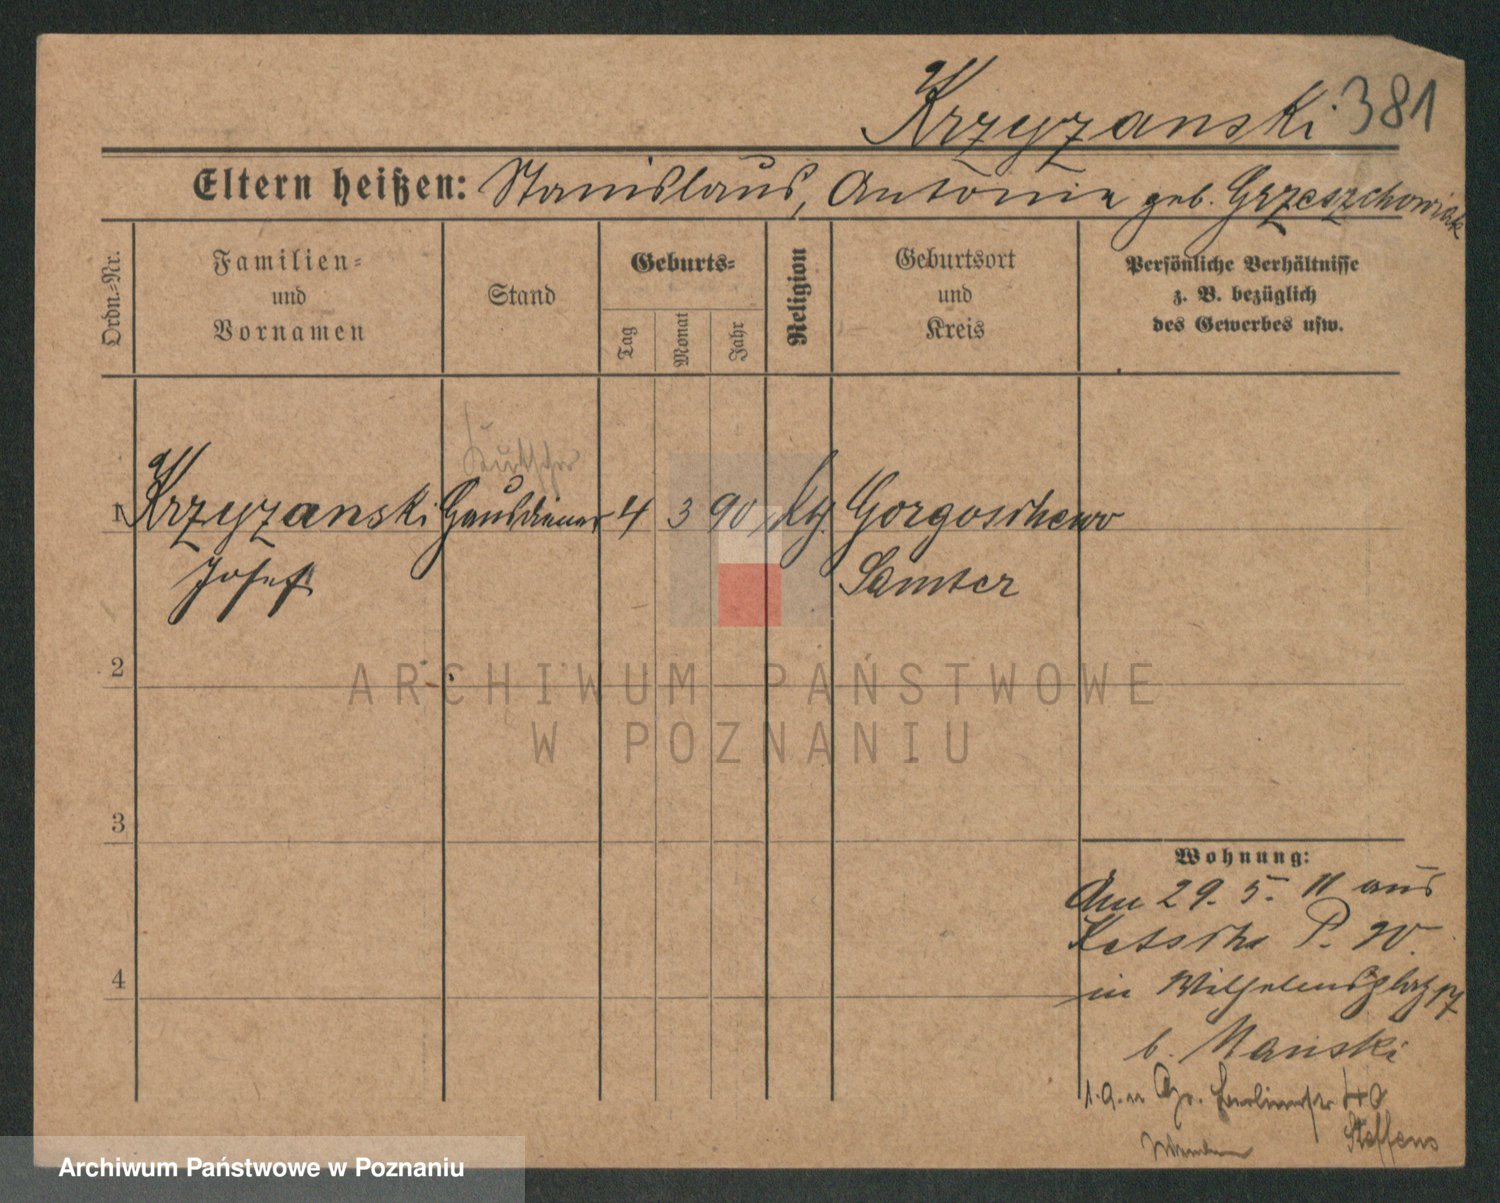 Krzyzanski 381
Eltern heißen: Stanislaus, Antonie geb. Grzeszchowiak
Ordn.-Nr.
Familien-
und
Vornamen
Stand
Geburts-
Tag
Monat
Jahr
Religion
Geburtsort
und
Kreis
Persönliche Verhältnisse
z. B. bezüglich
des Gewerbes usw.
Kutscher
1 Krzyzanski Hausdiener 4 3 90 kg. Gorgoschewo
Josef Samter
2
ARCHIWUM PAŃSTWOWE
W POZNANIU
3
Wohnung:
Am 29. 5. 11 aus
P. W.
4
in Wilhelmsplatz 17
b. Manski
1.9. Berlinerstr
Steffens
Archiwum Państwowe w Poznaniu